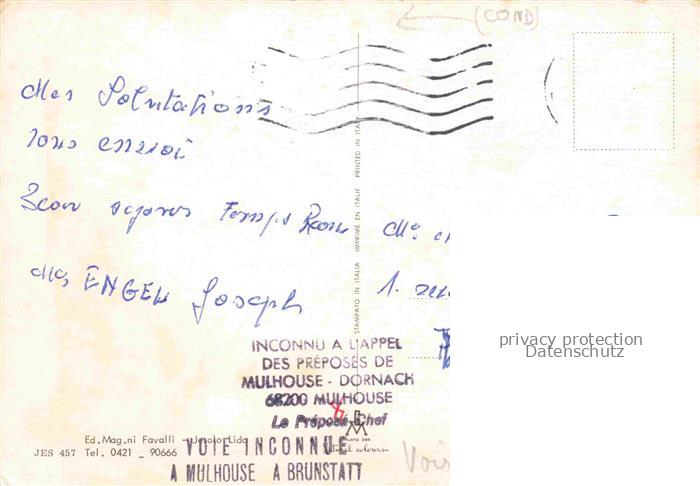 (COND)
Mes Salutations
vous envoi
Beau sejours Temps Beau
Mr ENGEL Joseph
1.
STAMPATO IN ITALIA IMPRIMÉ EN ITALIE PRINTED IN ITALY
INCONNU A L'APPEL
DES PRÉPOSÉS DE
MULHOUSE - DORNACH
68200 MULHOUSE
Le Préposé Chef
VOIE INCONNUE
A MULHOUSE A BRUNSTATT
Ed. Mag.ni Favalli Jesolo Lido
JES 457 Tel. 0421 _ 90666
natural colours
Voir
privacy protection
Datenschutz